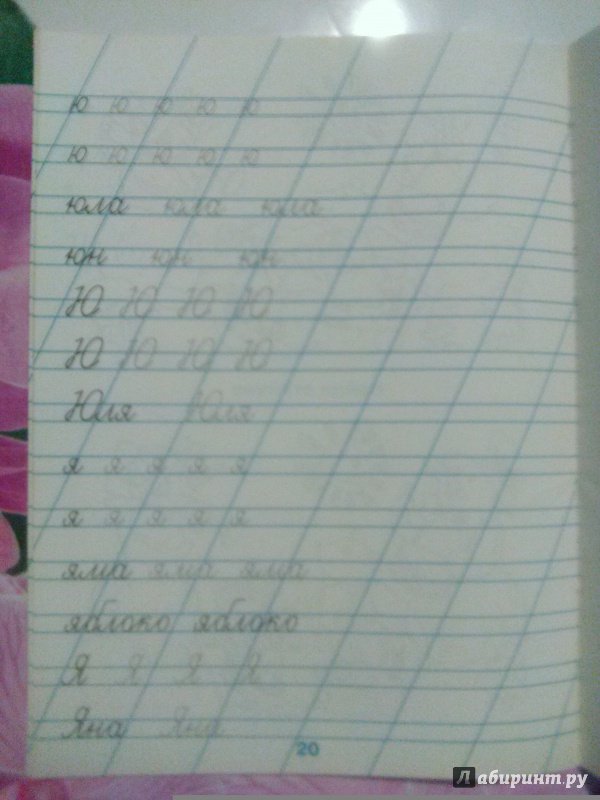 ю ю ю ю ю
ю ю ю ю ю
юла юла юла
юн юн юн
Ю Ю Ю Ю
Ю Ю Ю Ю
Юля Юля
я я я я я
я я я я я
яма яма яма
яблоко яблоко
Я Я Я Я
Яна Яна
20
Лабиринт.ру